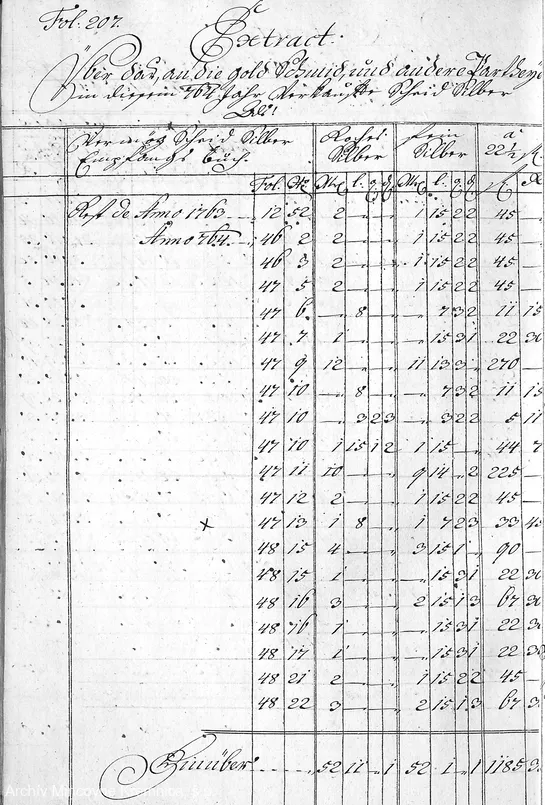 Fol. 207.
Extract.
Über das, an die gold Schmid, und andere Partheyen
in diesem 764 Jahr Verkaufte Scheid Silber
Als:
Vermög Scheid Silber Roches fein à
Empfangs Buch. Silber Silber 22½ f
Fol. No M l. q d M l. q d f x
Rest de Anno 1763 12 52 2 — — — 1 15 2 2 45 —
Anno 764 46 2 2 — — — 1 15 2 2 45 —
46 3 2 — — — 1 15 2 2 45 —
47 5 2 — — — 1 15 2 2 45 —
47 6 — 8 — — — 7 3 2 11 15
47 7 1 — — — — 15 3 1 22 30
47 9 12 — — — 11 13 3 — 270 —
47 10 — 8 — — — 7 3 2 11 15
47 10 — 3 2 3 — 3 2 2 5 11
47 10 1 15 1 2 1 15 — — 44 7
47 11 10 — — — 9 14 — 2 225 —
47 12 2 — — — 1 15 2 2 45 —
x 47 13 1 8 — — 1 7 2 3 33 45
48 15 4 — — — 3 15 1 — 90 —
48 15 1 — — — — 15 3 1 22 30
48 16 3 — — — 2 15 1 3 67 30
48 16 1 — — — — 15 3 1 22 30
48 17 1 — — — — 15 3 1 22 30
48 21 2 — — — 1 15 2 2 45 —
48 22 3 — — — 2 15 1 3 67 3
Hinüber 52 11 — 1 52 1 — 1 1185 3
Archív Mincovne Kremnica, š.p.